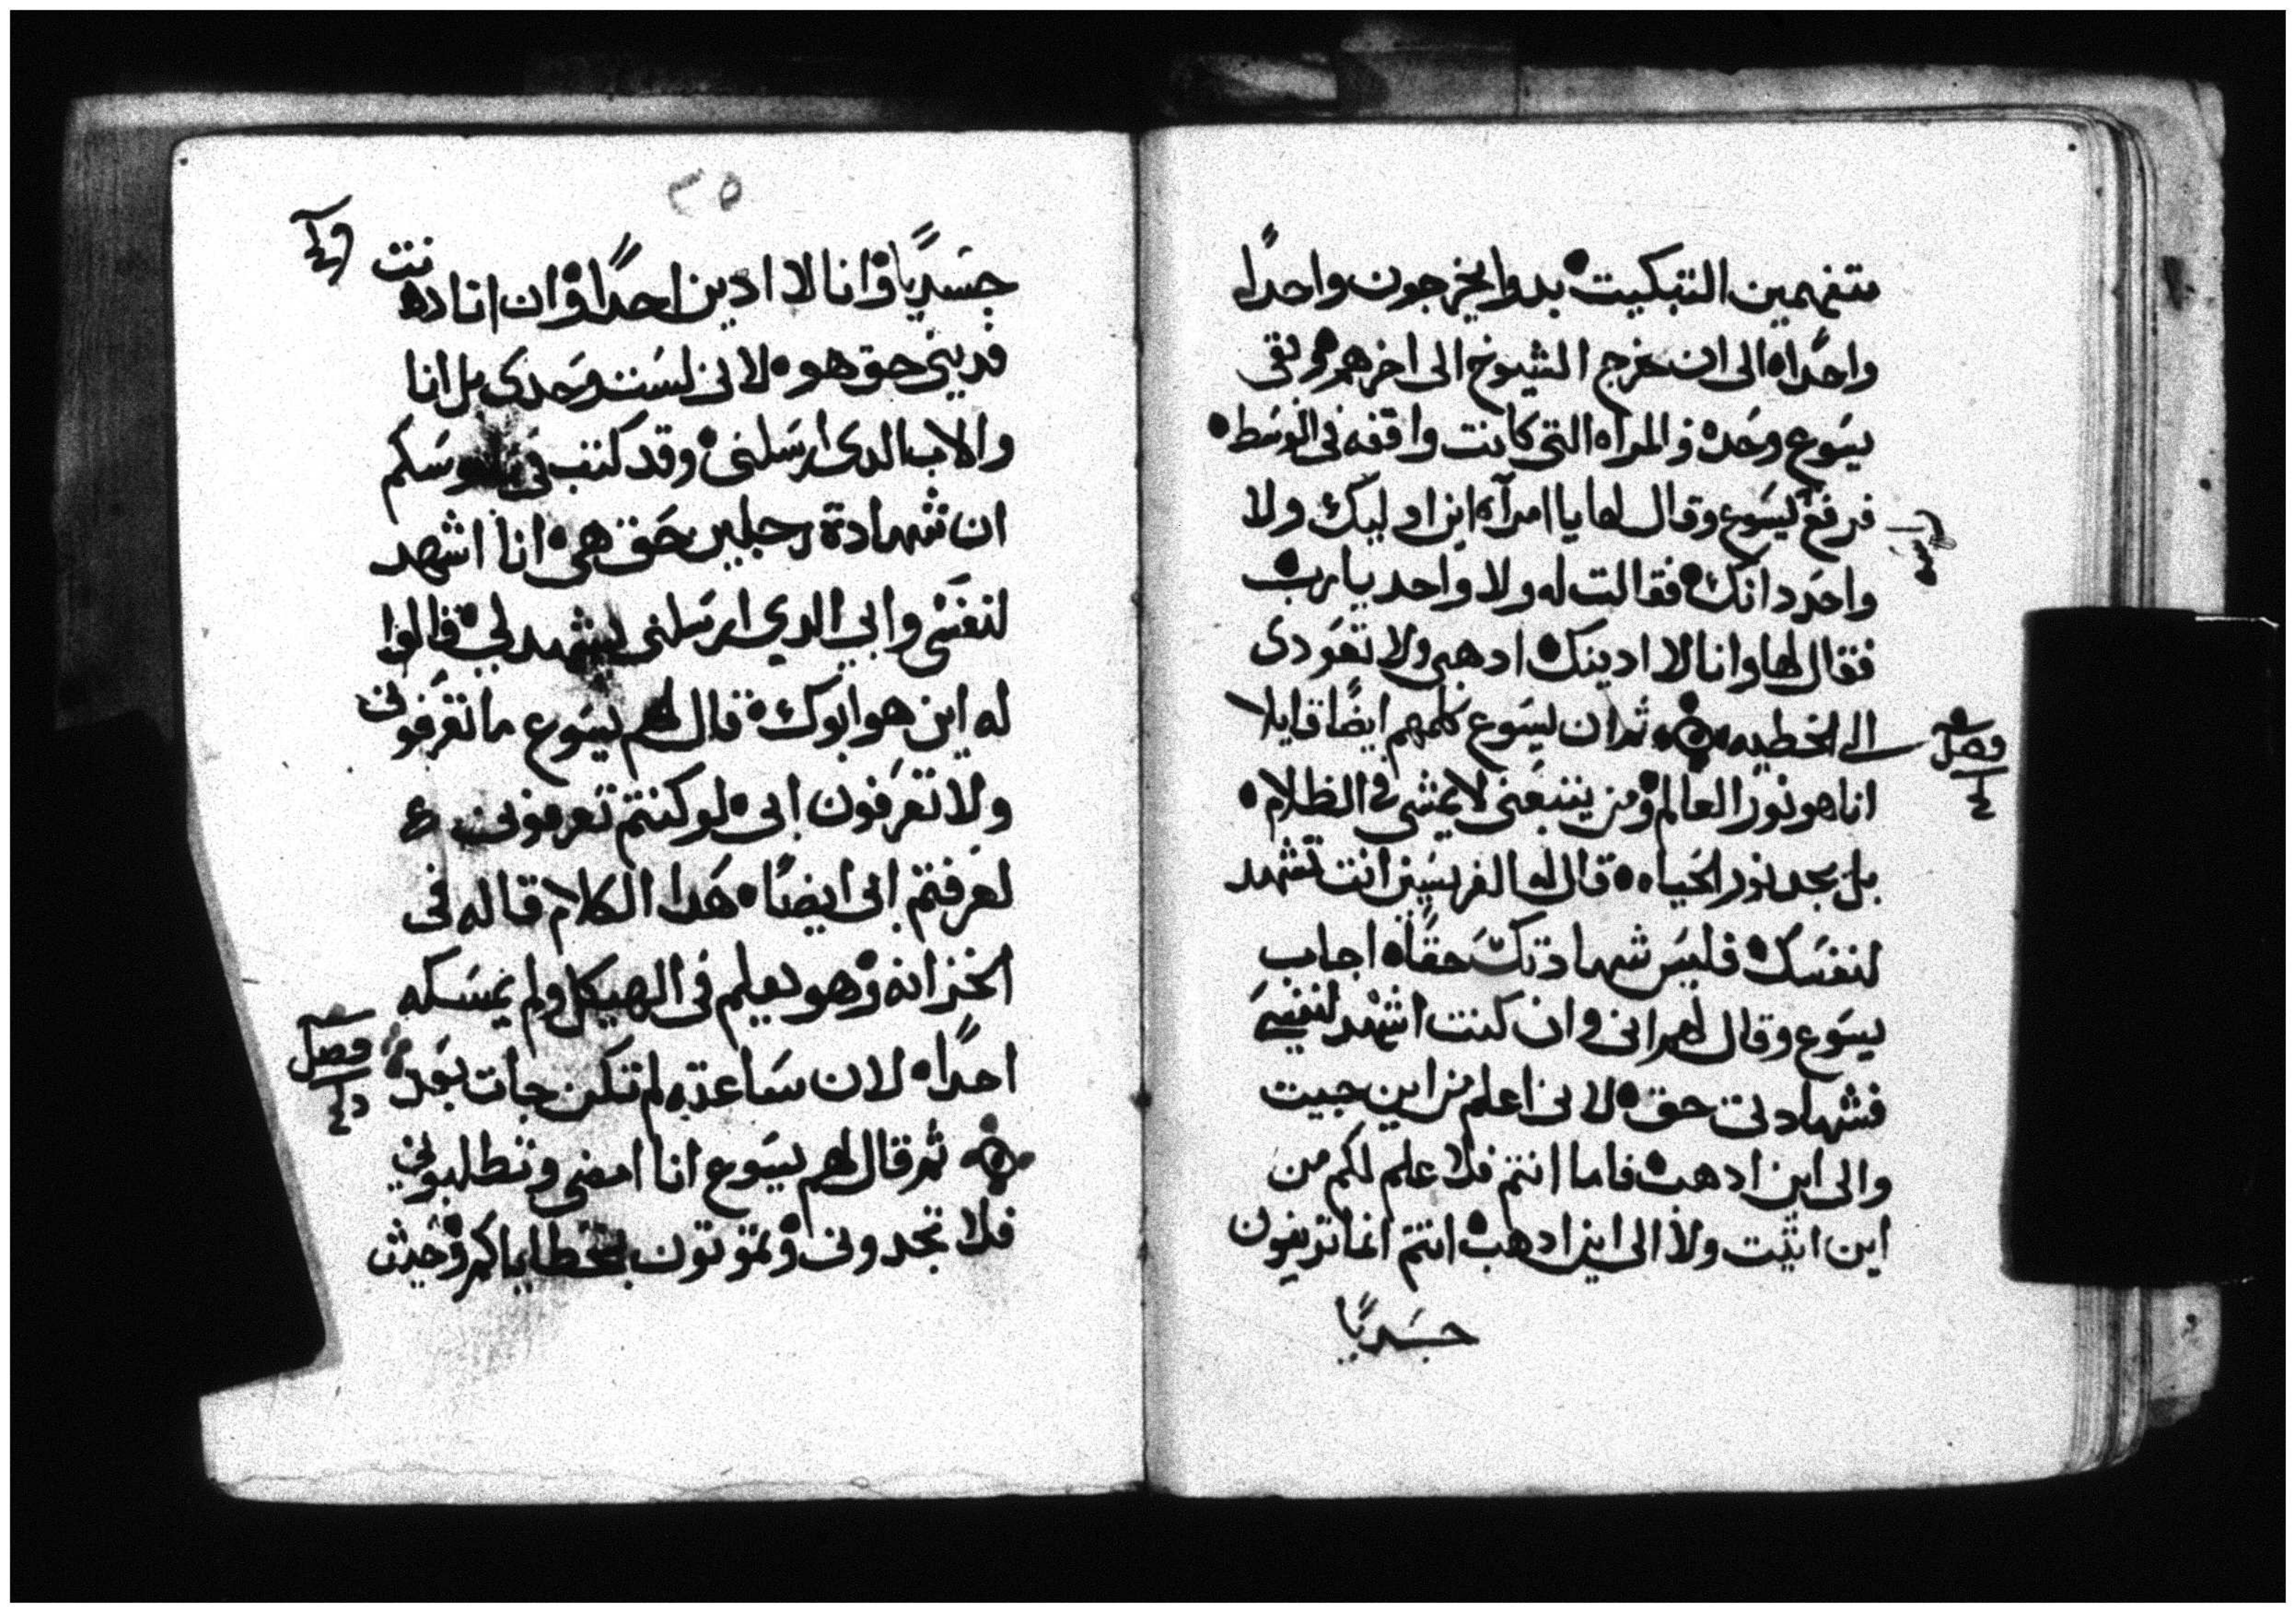 متفهمين التبكيت بدوا يخرجون واحدًا
واحدًا الى ان خرج الشيوخ الى اخرهم وبقى
يسوع وحده والمراه التى كانت واقفه فى الوسط
فرفع يسوع وقال لها يا امرآه اين اوليك ولا
واحد دانك فقالت له ولا واحد يا رب
فقال لها وانا لا ادينك ادهبى ولا تعودى
الى الخطيه ثم ان يسوع كلمهم ايضًا قايلا
فصل
انا هو نور العالم ومن يتبعنى لا يمشى فى الظلام
بل يجد نور الحياه قال له الفريسين انت تشهد
لنفسك فليس شهادتك حقًا اجاب
يسوع وقال لهم انى وان كنت اشهد لنفسى
فشهادتى حق لانى اعلم من اين جيت
والى اين ادهب فاما انتم فلا علم لكم من
اين اتيت ولا الى اين ادهب انتم انما تدينون
جسديًا
٣٥
جسديًا وانا لا ادين احدًا وان انا دنت
فدينى حق هو لانى لست وحدى بل انا
والاب الدى ارسلنى وقد كتب فى ناموسكم
ان شهادة رجلين حق هى انا اشهد
لنفسى وابى الدي ارسلنى يشهد لي قالوا
له اين هو ابوك قال لهم يسوع ما تعرفونى
ولا تعرفون ابى لو كنتم تعرفونى
لعرفتم ابى ايضًا هدا الكلام قاله فى
الخزانه وهو يعلم فى الهيكل ولم يمسكه
احدًا لان ساعته لم تكن جات بعد
فصل
ثم قال لهم يسوع انا امضى وتطلبونى
فلا تجدونى وتموتون بخطاياكم وحيث